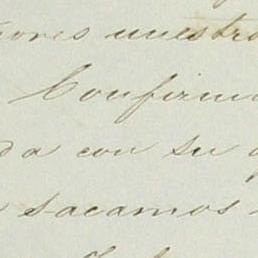 ores nuestro
Confirm
da con su
sacamos